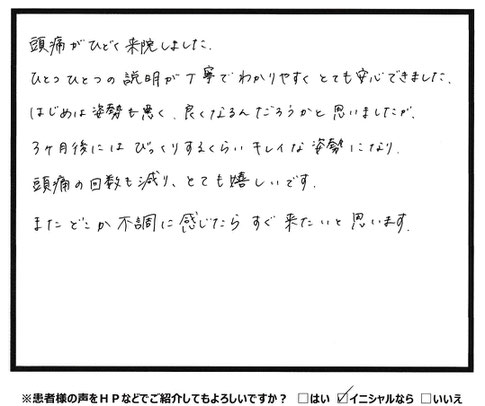 頭痛がひどく来院しました.
ひとつひとつの説明が丁寧でわかりやすくとても安心できました.
はじめは姿勢も悪く、良くなるんだろうかと思いましたが、
3ヶ月後にはびっくりするくらいキレイな姿勢になり、
頭痛の回数も減り、とても嬉しいです.
またどこか不調に感じたらすぐ来たいと思います.
※患者様の声をHPなどでご紹介してもよろしいですか？ □はい ☑イニシャルなら □いいえ